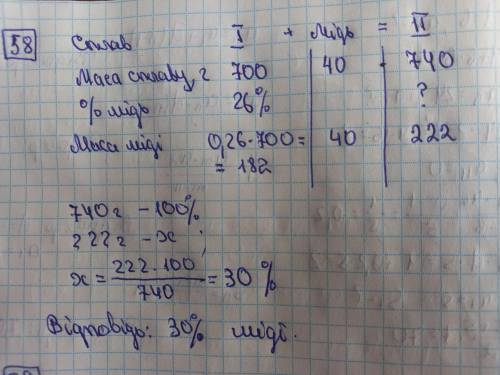 58 Сплав I + мідь = II
Маса сплаву, г 700 40 740
% мідь 26% ?
Маса міді 0,26·700 = 40 222
= 182
740 г – 100%
222 г – x ;
x = 222·100 / 740 = 30 %
Відповідь: 30% міді.